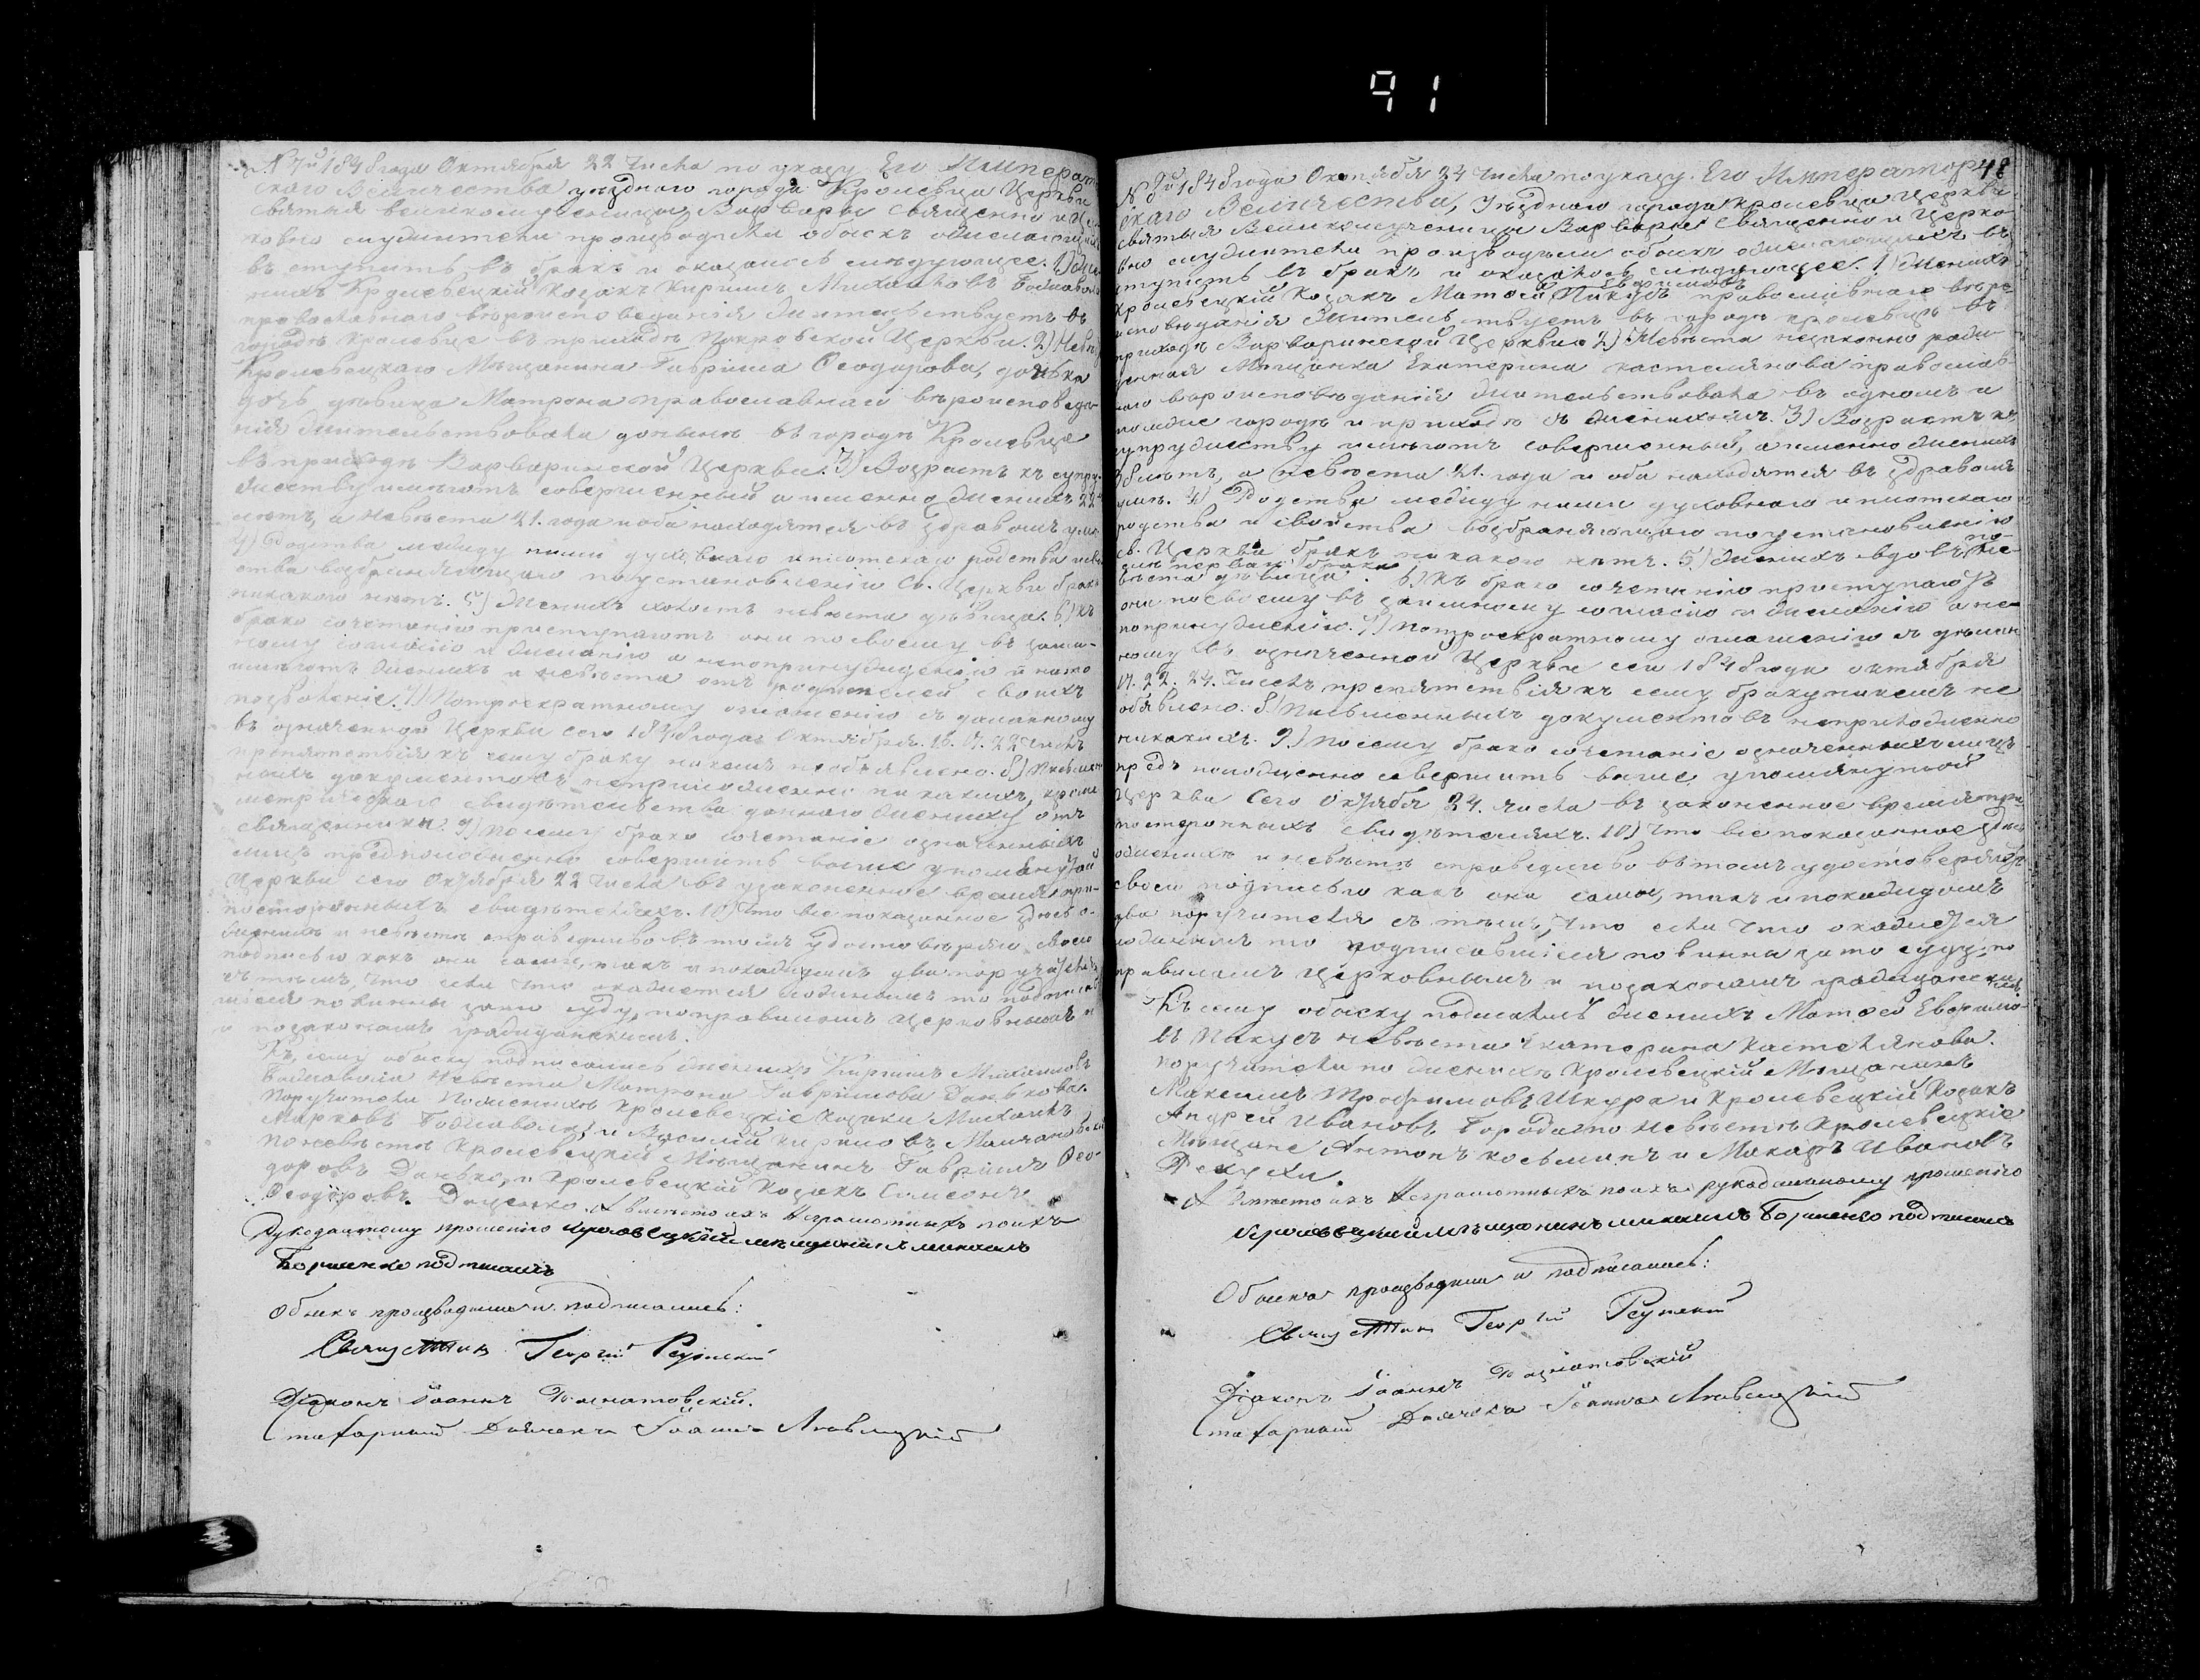 91
N 7й 1848 года Октября 22 числа по указу Его Императо
скаго Величества уезднаго города Кролевца Церкви
Святыя великомученицы Варвары Священно и Цер
ковно служители производили обыскъ о желающихъ
въ ступить въ бракъ и оказалось следующее. 1) Же
нихъ Кролевецкій Козакъ Кирилъ Михайловъ
православнаго вероисповеданія жительствуетъ въ
городе Кролевце въ приходе Покровской Церкви. 2) Неве
Кролевецкаго Мещанина Гавріила Феодорова, данька
дочь девица Матрона православнаго вероисповеда
нія жительствовала доныне въ городе Кролевце
въ приходе Варваринской Церкви. 3) Возрастъ къ супру
жеству имеютъ совершенный а именно женихъ 22
летъ, а невеста 21. года и оба находятся въ здравомъ уме
4) Родства между ними духовнаго и плотскаго родства и свой
ства возбраняющаго по установленію Св. Церкви бракъ
никакого нетъ. 5) Женихъ холостъ невеста девица. 6) къ
брако сочетанію приступаютъ они по своему въ заим
ному согласію и желанію а не по принужденію и на то
имеютъ женихъ и невеста отъ родителей своихъ
позволеніе. 7) По троекратному оглашенію зделанному
въ означенной Церкви сего 1848 года Октября. 16. 17. 22 числъ
препятствія къ сему браку никемъ не объявлено. 8) Письмен
ныхъ документовъ неприложенно никакихъ, кроме
метрическаго свидетельства даннаго жениху отъ
священника. 9) По сему брако сочетаніе означенныхъ
лицъ предположенно совершить выше упомянутой
Церкви сего Октября 22 числа въ узаконенное время при
постороннихъ свидетеляхъ. 10) Что все показанное здесь о
женихе и невесте справедливо въ томъ удостоверяю своею
подписью какъ они сами, такъ и по каждымъ два поручителя
съ темъ, что если что окажется ложнымъ то подписав
шіеся повинны зато суду, по правиламъ Церковнымъ и
по законамъ гражданскимъ.
Къ сему обыску подписались женихъ Кирилъ Михайловъ
невеста Матрона Гаврилова Данькова.
Поручители по женихе Кролевецкіе Козаки Михаилъ
Марковъ и Василій Кириловъ
по невесте Кролевецкій Мещанинъ Гавріилъ Фео
доровъ Данько, и Кролевецкій Козакъ Самсонъ
Феодоровъ Даценко. А вместо ихъ Неграмотныхъ по ихъ
Рукоданному прошенію кролевецкій мещанинъ михаилъ
Борисенко подписалъ
Обыскъ производили и подписались:
Священникъ Георгій
Діаконъ Іоаннъ Базилатовскій.
Стихарный Дьячекъ Іоаннъ
48
N 8й 1848 года Октября 24 числа по указу Его Император
скаго Величества, Уезднаго города Кролевца Церкви
святыя Великомученицы Варвары Священно и Церко
вно служители производили обыскъ о желающихъ въ
ступить въ бракъ и оказалось следующее. 1) Женихъ
Кролевецкій Козакъ Матфей Евфимовъ Пикусъ православнаго веро
исповеданія жительствуетъ въ городе Кролевце въ
приходе Варваринской Церкви. 2) Невеста незаконно рож
денная Мещанка Екатерина Кастелянова православ
наго вероисповеданія жительствовала въ одномъ и
томъже городе и приходе съ женихомъ. 3) Возрастъ къ
супружеству имеютъ совершенный, а именно женихъ
летъ, а невеста 21. года и оба находятся въ здравомъ
уме. 4) Родства между ними духовнаго и плотскаго
родства и свойства возбраняющаго по установленію
Св. Церкви бракъ никакого нетъ. 5) Женихъ вдовъ по
сле первая брака не
веста девица. 6) Къ брако сочетанію приступаютъ
они по своему въ заимному согласію и желанію а не
по принужденію. 7) По троекратному оглашенію зделан
ному въ означенной Церкви сего 1848 года октября
17. 22. 24. Числъ препятствія къ сему браку никемъ не
объявлено. 8) Письменныхъ документовъ неприложенно
никакихъ. 9) По сему брако сочетаніе означенныхъ лицъ
предположенно совершить выше упомянутой
Церкви сего Октября 24. числа въ узаконенное время при
постороннихъ свидетеляхъ. 10) Что все показанное здесь
о женихе и невесте справедливо въ томъ удостоверяютъ
своею подписью какъ они сами, такъ и по каждомъ
два поручителя съ темъ, что если что окажется
ложнымъ то подписавшіеся повинны зато суду, по
правиламъ Церковнымъ и по законамъ гражданскимъ
Къ сему обыску подписались женихъ Матфей Евфимо
въ Пикусъ невеста Екатерина Кастелянова.
поручители по женихе Кролевецкій Мещанинъ
Максимъ Трофимовъ Шкура и Кролевецкій Козакъ
Андрей Ивановъ Борода, по невесте Кролевецкіе
Мещане Антонъ Косьминъ и Макаръ Ивановъ
А Вместо ихъ Неграмотныхъ по ихъ рукоданному прошенію
кролевецкій мещанинъ михаилъ Борисенко подписалъ
Обыскъ производили и подписались:
Священникъ Георгій
Діаконъ Іоаннъ Базилатовскій
Стихарный Дьячекъ Іоаннъ